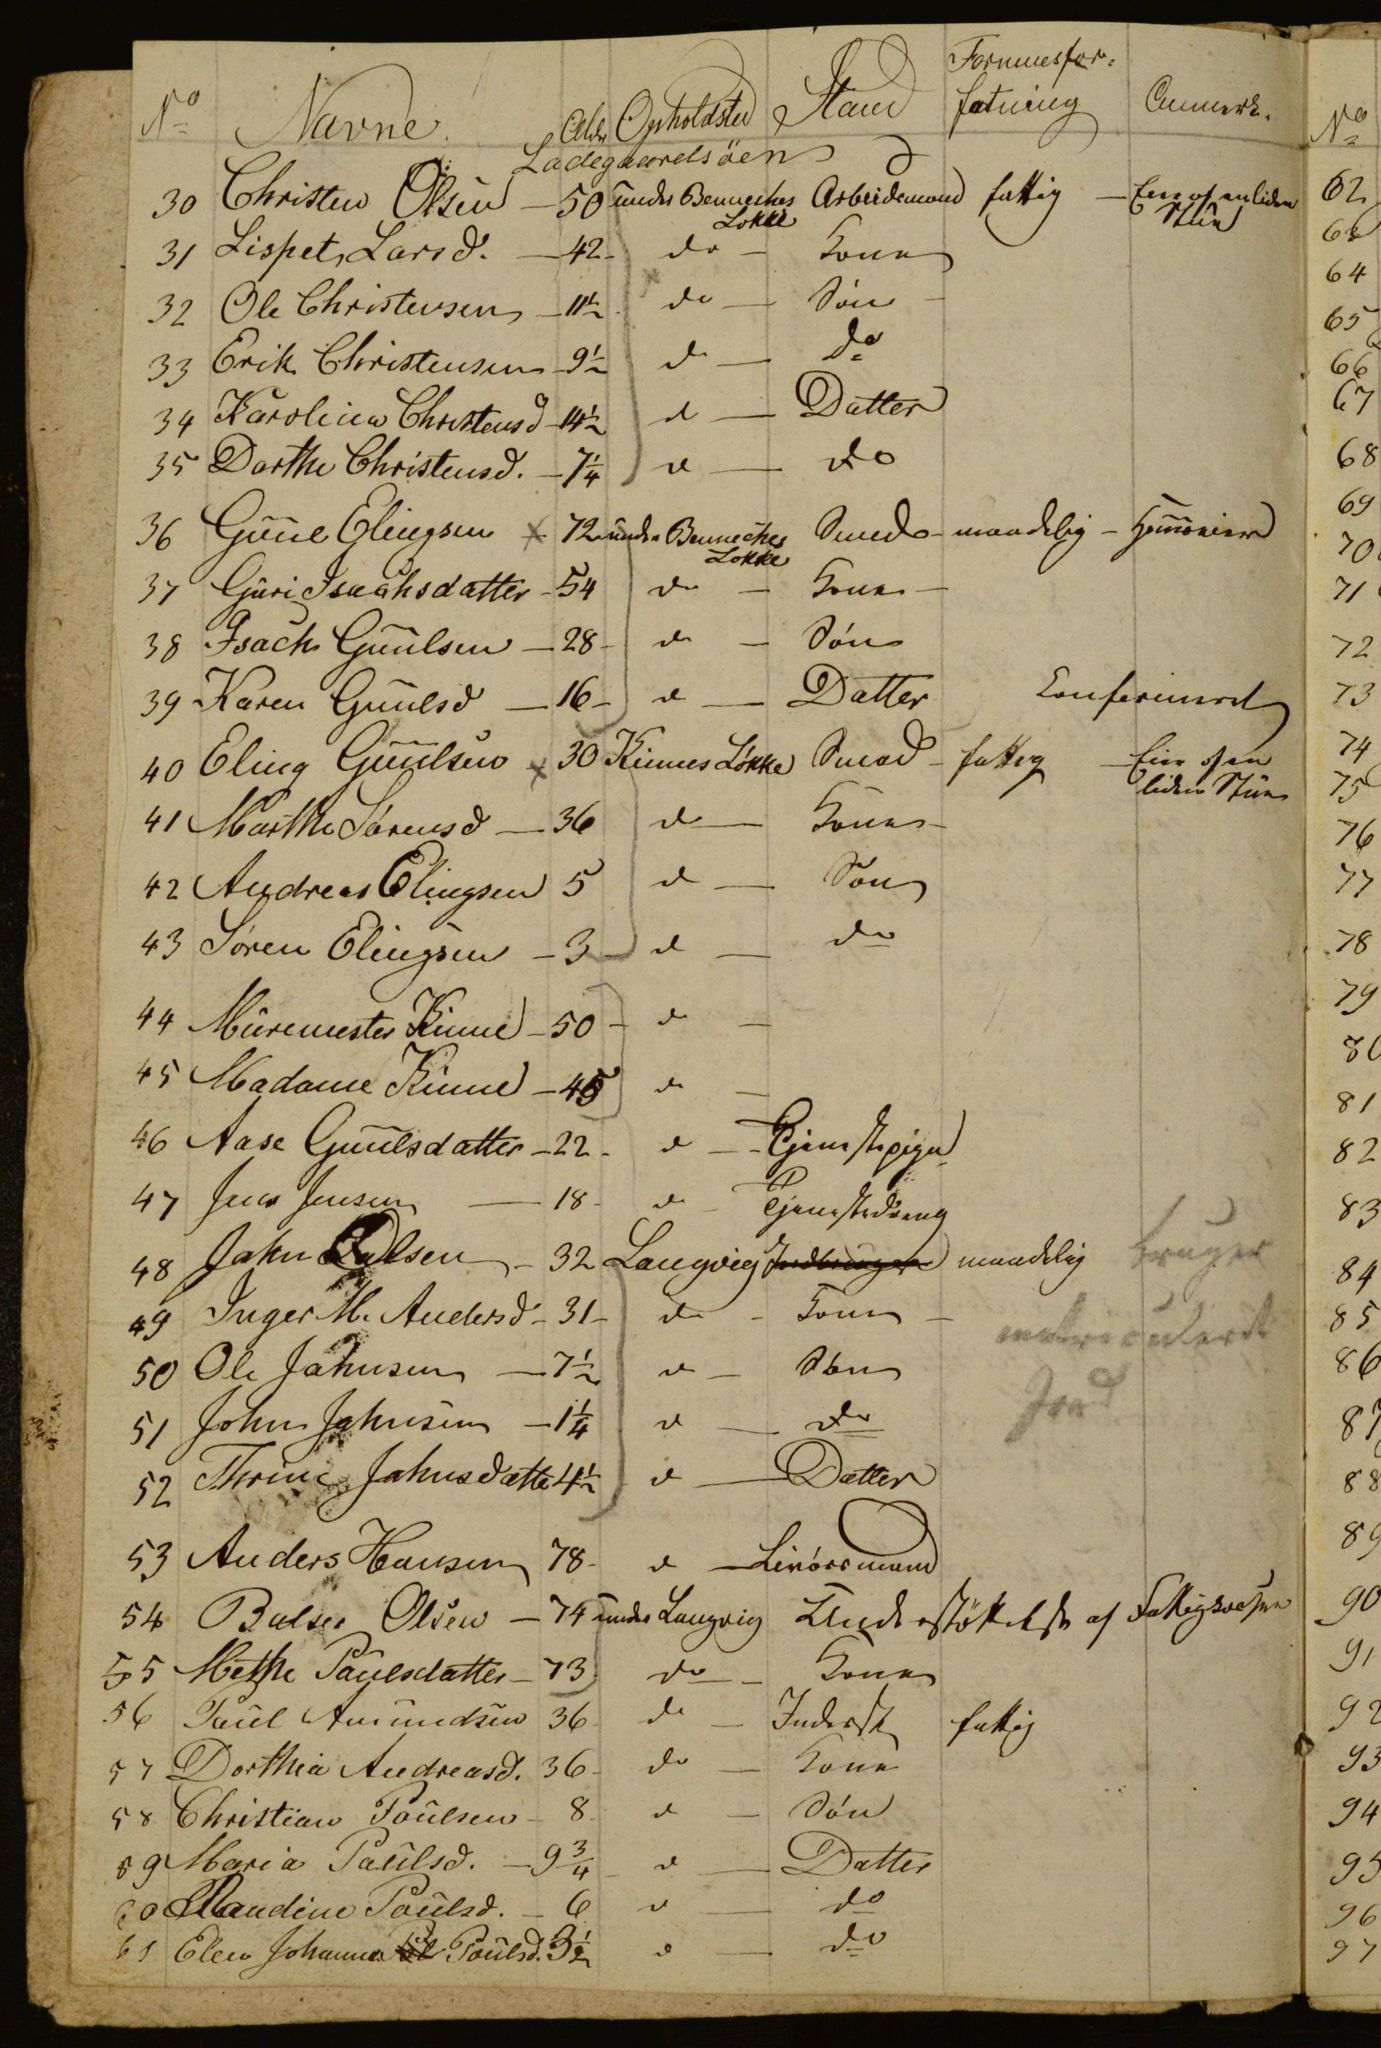 Formuesfor-
No Navne. Alder Opholdsted Stand fatning Anmerk.
Ladegaardsöen
30 Christen Olsen - 50 under Benneches Løkke Arbeidsmand fattig - Eier af en liden Stue
31 Lispet Larsd. - 42 - do - Kone
32 Ole Christensen - 11½ do - Søn -
33 Erik Christensen - 9½ d - do
34 Karolina Christensd - 14½ d - Datter
35 Dorthe Christensd. - 7¼ d - do
36 Guul Elingsen x 72 under Benneches Løkke Smed - maadelig -
37 Guri Isachsdatter - 54 do - Kone -
38 Isach Guulsen - 28 - d - Søn
39 Karen Guulsd - 16 - d - Datter Confirmert
40 Eling Guulsen x 30 Kinnes Løkke Smed - fattig - Eier af en liden Stue
41 Marthe Sørensd - 36 d - Kone -
42 Andreas Elingsen 5 d - Søn
43 Søren Elingsen - 3 - d - do
44 Muremester Kinne - 50 - d -
45 Madame Kinne - 45 d -
46 Aase Guulsdatter - 22 - d - Tjenestepige
47 Jens Jensen - 18 - d - Tjenestedreng
48 Jahn Olsen - 32 Langvig Jordbruger maadelig bruger
49 Inger M. Andersd - 31 - do - Kone - matriculerdt
50 Ole Jahnsen - 7½ d - Søn
51 John Jahnsen - 1¼ d - do Jord
52 Thrine Jahnsdatter 4½ d - Datter
53 Anders Hansen 78 - d - Livørsmand
54 Balser Olsen - 74 under Langvig Understøttelse af Fattigvæsen
55 Methe Paulsdatter - 73 do - Kone
56 Paul Amundsen 36 - do - Inderst fattig
57 Dorthia Andreasd. 36 - do - Kone
58 Christian Poulsen - 8 - d - Søn
59 Maria Paulsd. - 9¾ d - Datter
60 Randine Poulsd. - 6 d - do
61 Elen Johanna Poulsd. 3½ d - do
No
62
63
64
65
66
67
68
69
70
71
72
73
74
75
76
77
78
79
80
81
82
83
84
85
86
87
88
89
90
91
92
93
94
95
96
97